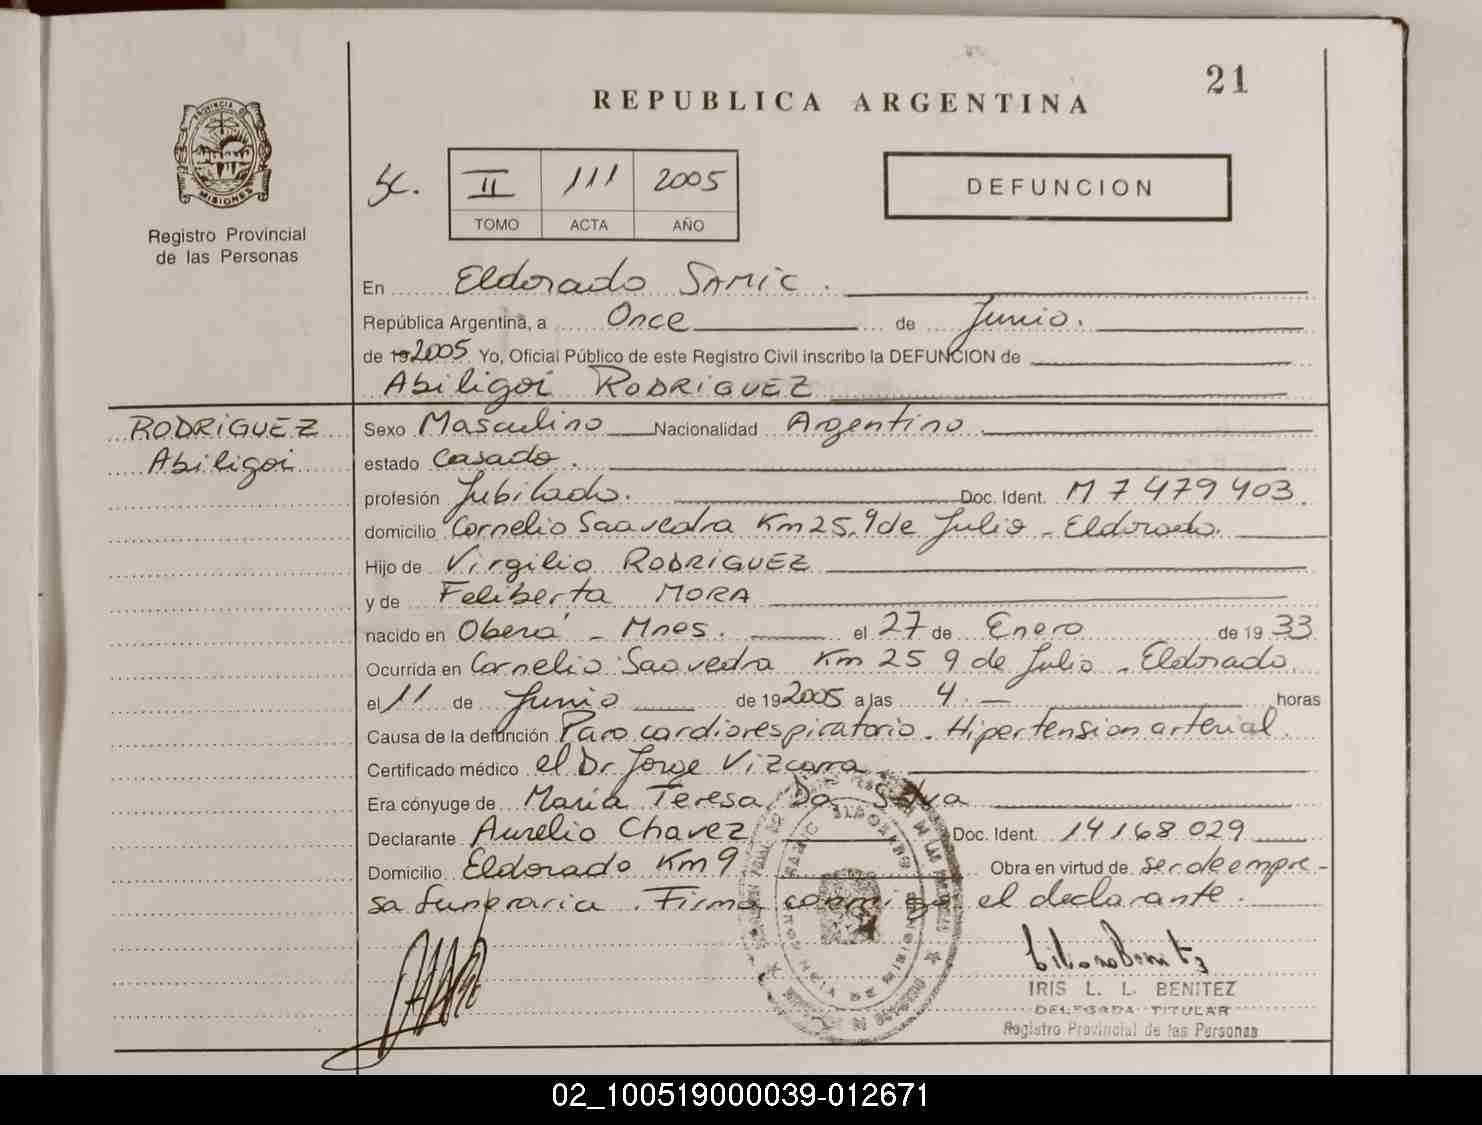 21
REPUBLICA ARGENTINA
PROVINCIA DE
MISIONES
Registro Provincial
de las Personas
Sc. II 111 2005
TOMO ACTA AÑO
DEFUNCION
En Eldorado SAMIC.
República Argentina, a Once de Junio.
de 192005 Yo, Oficial Público de este Registro Civil inscribo la DEFUNCION de
Abiligoi RODRIGUEZ
RODRIGUEZ
Abiligoi
Sexo Masculino Nacionalidad Argentino
estado Casado.
profesión Jubilado. Doc. Ident. M 7479403.
domicilio Cornelio Saavedra Km 25. 9 de Julio - Eldorado.
Hijo de Virgilio RODRIGUEZ
y de Feliberta MORA
nacido en Oberá - Mnes. el 27 de Enero de 1933
Ocurrida en Cornelio Saavedra Km 25 9 de Julio - Eldorado.
el 11 de Junio de 192005 a las 4.- horas
Causa de la defunción Paro cardiorespiratorio. Hipertension arterial.
Certificado médico el Dr Jorge Vizcarra
Era cónyuge de María Teresa Da Silva
Declarante Aurelio Chavez Doc. Ident. 14168029
Domicilio Eldorado Km 9 Obra en virtud de ser de empre-
sa funeraria. Firma conmigo el declarante.
IRIS L. L. BENITEZ
DELEGADA TITULAR
Registro Provincial de las Personas
02_100519000039-012671